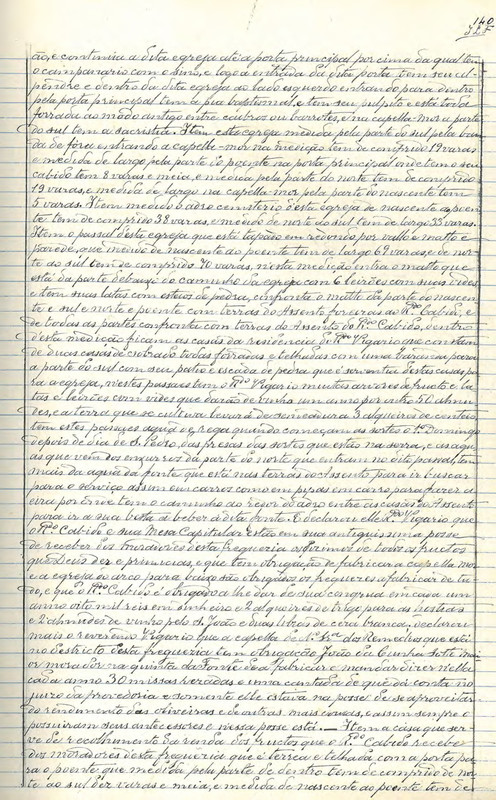 140
ão, e continúa a dita egreja até a porta principal por cima da qual tem
o campanario com o sino, e logo a entrada da dita porta tem seu al-
pendre e dentro da dita egreja ao lado esquerdo entrando para dentro
pela porta principal tem a pia baptismal, e tem seu pulpito e está toda
forrada ao modo antigo entre caibros ou barrotes, e na capella-mór a parte
do sul tem a sacristia. Item esta egreja medida pela parte do sul pela ban-
da de fóra entrando a capella-mór na medição tem de comprido 19 varas
e medida de largo pela parte do poente na porta principal onde tem o seu
cabido tem 8 varas e meia, e medida pela parte do norte tem de comprido
19 varas, e medida de largo na capella-mór pela parte do nascente tem
5 varas. Item medido o adro cemiterio d'esta egreja de nascente ao poen-
te tem de comprido 38 varas, e medido de norte ao sul tem de largo 33 varas.
Item o passal d'esta egreja que está tapado em redondo por vallo e matto e
parede, que medido de nascente ao poente tem de largo 69 varas e de nor-
te ao sul tem de comprido 70 varas, n'esta medição entra o matto que
está da parte debaixo do caminho da egreja com 6 leirões com suas vides
e tem suas latas com esteios de pedra, confronta o matto da parte do nascen-
te e sul e norte e poente com terras do Assento foreiras ao Rdo Cabido, e
de todas as partes confronta com terras do Assento do Rdo Cabido, dentro
d'esta medição ficam as casas da residencia do Rdo Vigario que constam
de duas casas de sobrado todas forradas e telhadas com uma varanda para
a parte do sul com seu patio e escada de pedra que é serventia d'estas casas pa-
ra a egreja, n'estes passaes tem o Rdo Vigario muitas arvores de fructo e la-
tas e leirões com vides que darão de vinho um anno por outro 50 almu-
des, e a terra que se cultiva levará de semeadura 3 alqueires de centeio,
tem estes passaes agua de rega quando começam as sortes o 1º Domingo
depois do dia de S. Pedro, das presas das sortes que estão na serra, e as agu-
as que vem dos enxurros da parte do norte que entram no dito passal, tem
mais da agua da fonte que está nas terras do Assento para ir buscar
para o serviço assim em carros como em pipas em carro para fazer a
eira por onde tem o caminho ao redor do adro entre as casas do Assento
para ir a sua besta a beber á dita fonte. E declarou elle Rdo Vigario que
o Rdo Cabido e sua Mesa Capitular estão em sua antiquissima posse
de receber dos moradores d'esta freguezia os dizimos de todos os fructos
que Deus dér e primicias, e que tem obrigação de fabricar a capella-mór
e a egreja do arco para baixo são obrigados os freguezes a fabricar de tu-
do, e que o Rdo Cabido é obrigado a lhe dar de sua congrua em cada um
anno oito mil reis em dinheiro e 2 alqueires de trigo para as hostias
e 2 almudes de vinho pelo S. João e duas libras de cera branca, declarou
mais o reverendo Vigario que a capella de N. Sra dos Remedios que está
no destricto d'esta freguezia tem obrigação João da Cunha Sotto mai-
or morador na quinta da Fonte de a fabricar e mandar dizer n'ella
cada anno 30 missas rezadas e uma cantada de que dá conta no
juizo da provedoria e somente elle estava na posse de se aproveitar
do rendimento das oliveiras e de outras mais cousas, e assim sempre o
possuiram seus antecessores e n'essa posse está. — Item a casa que ser-
ve de recolhimento da renda dos fructos que o Rdo Cabido recebe
dos moradores d'esta freguezia que é terrea e telhada com a porta pa-
ra o poente que medida pela parte de dentro tem de comprido de nor-
te ao sul dez varas e meia, e medida de nascente ao poente tem de